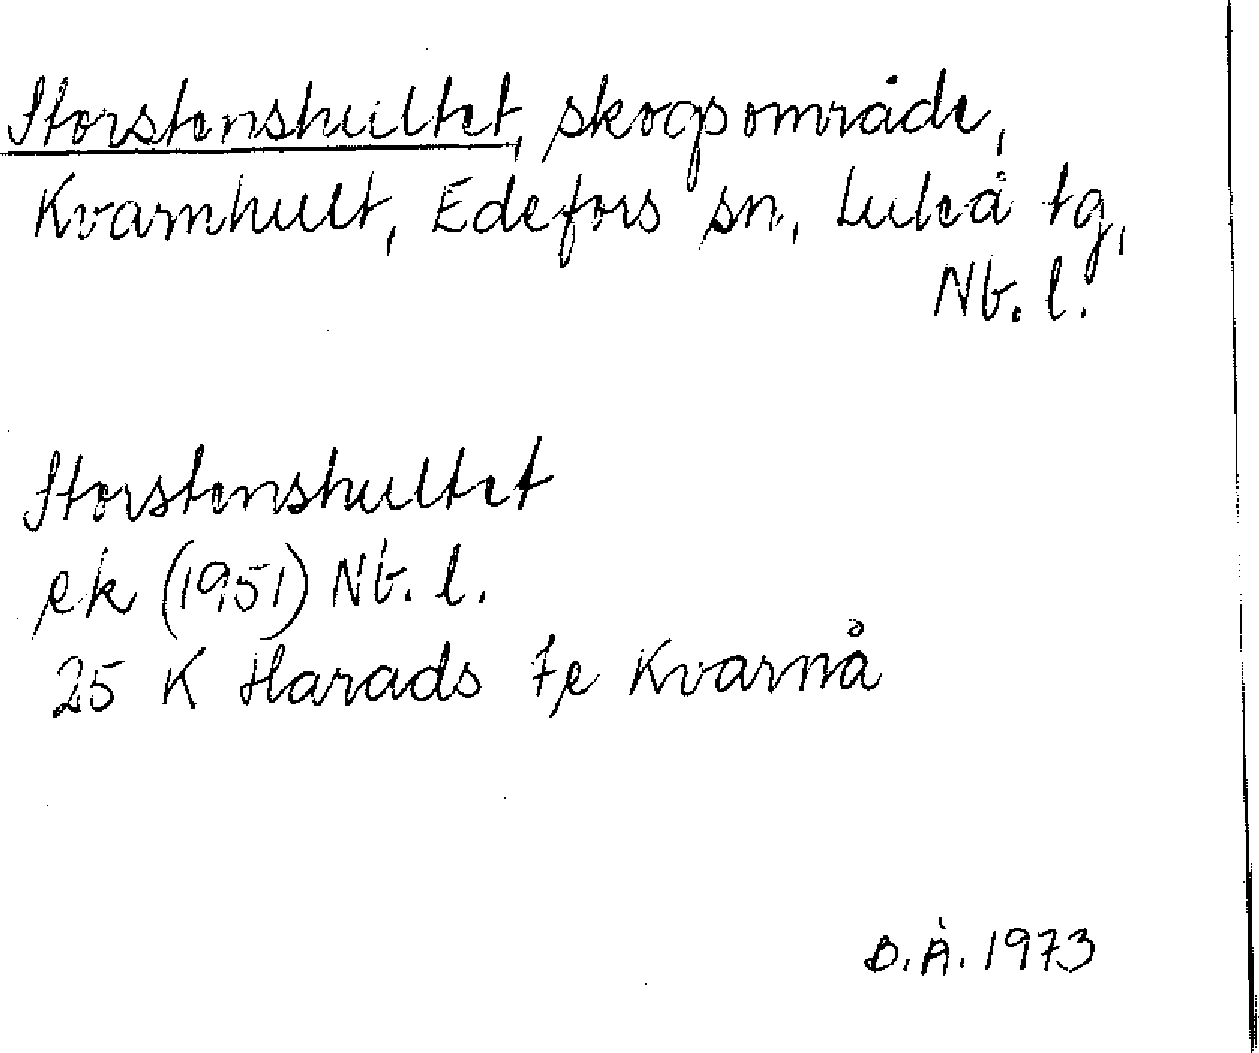 Storstenshultet, skogsområde,
Kvarnhult, Edefors sn, Luleå tg,
Nb. l.
Storstenshultet
ek (1951) Nb. l.
25 K Harads 7e Kvarnå
B.Å. 1973